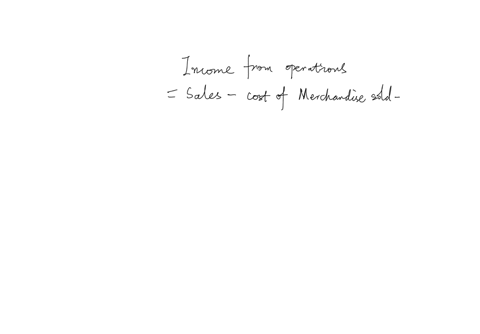 Income from operations
= Sales - cost of Merchandise sold -